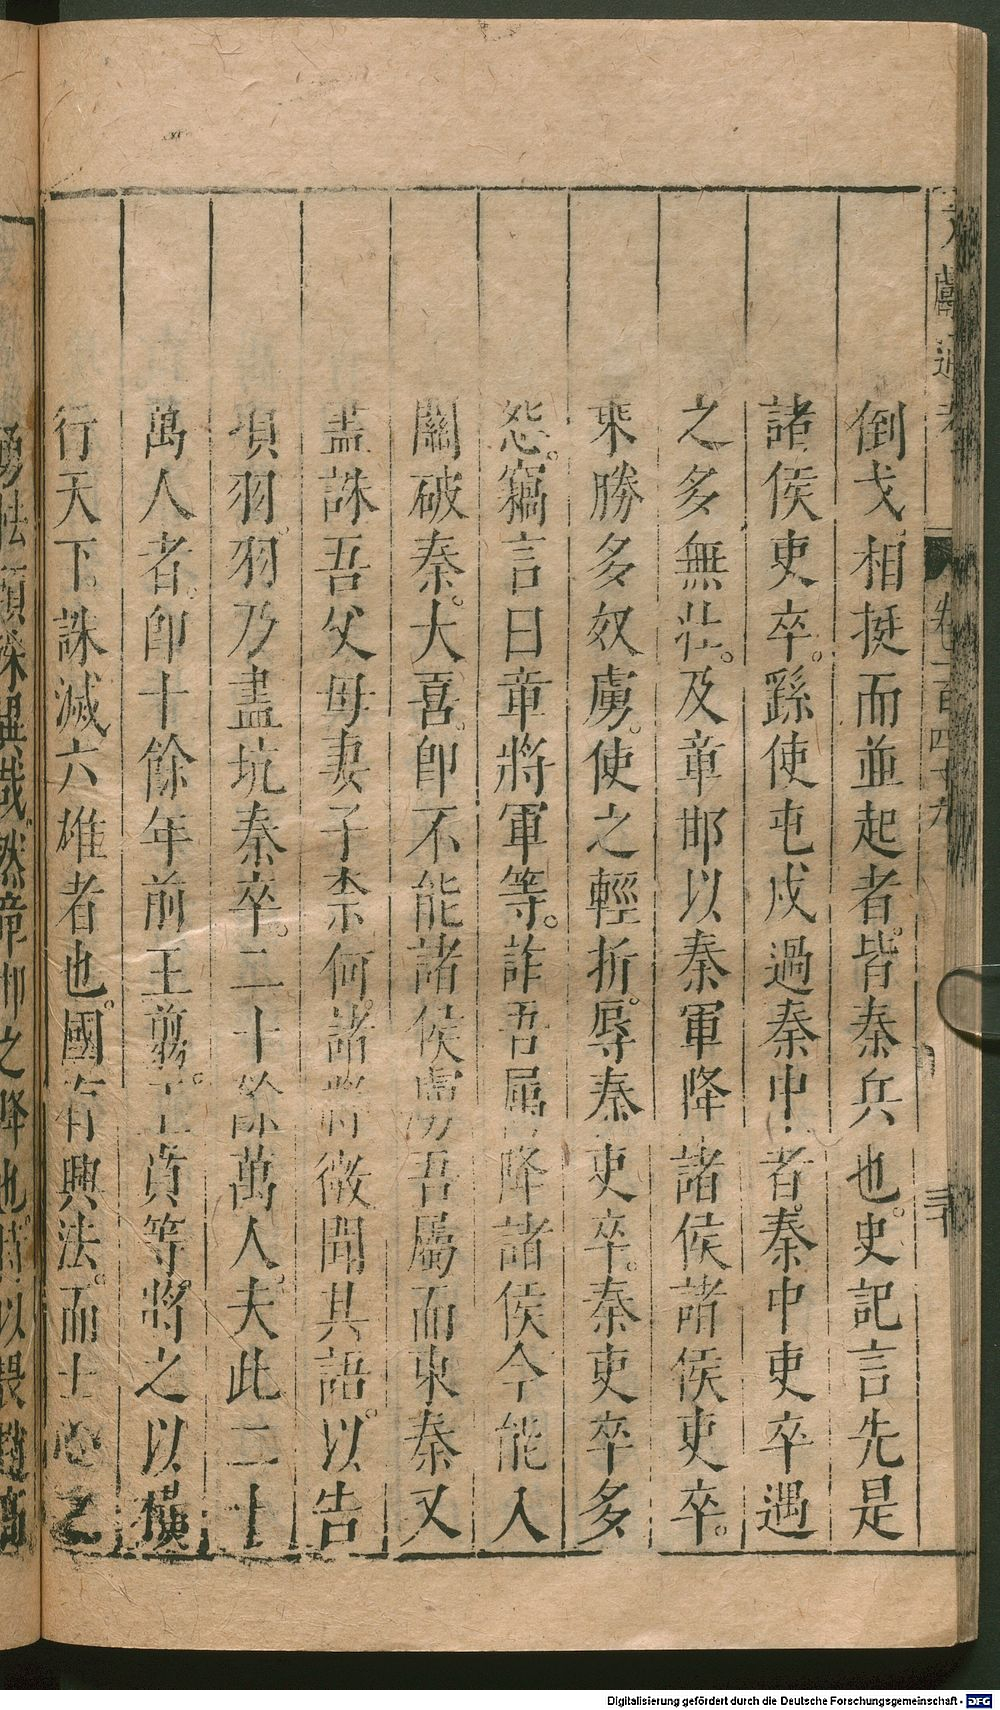 文獻通考
卷一百四十九
三十
倒戈相挺而並起者。皆秦兵也。史記言先是
諸侯吏卒。繇使屯戍過秦中者。秦中吏卒遇
之多無壯。及章邯以秦軍降諸侯諸侯吏卒。
乘勝多奴虜。使之輕折。辱秦吏卒。秦吏卒多
怨。竊言曰章將軍等。詐吾屬降諸侯今能入
關破秦。大喜。卽不能諸侯虜吾屬而東秦又
盡誅吾父母妻子柰何。諸將微聞其語。以告
項羽。羽乃盡坑秦卒。二十餘萬人。夫此二十
萬人者。卽十餘年前王翦。王賁等。將之以橫
行天下。誅滅六雄者也。國有興法。而士心
Digitalisierung gefördert durch die Deutsche Forschungsgemeinschaft - DFG